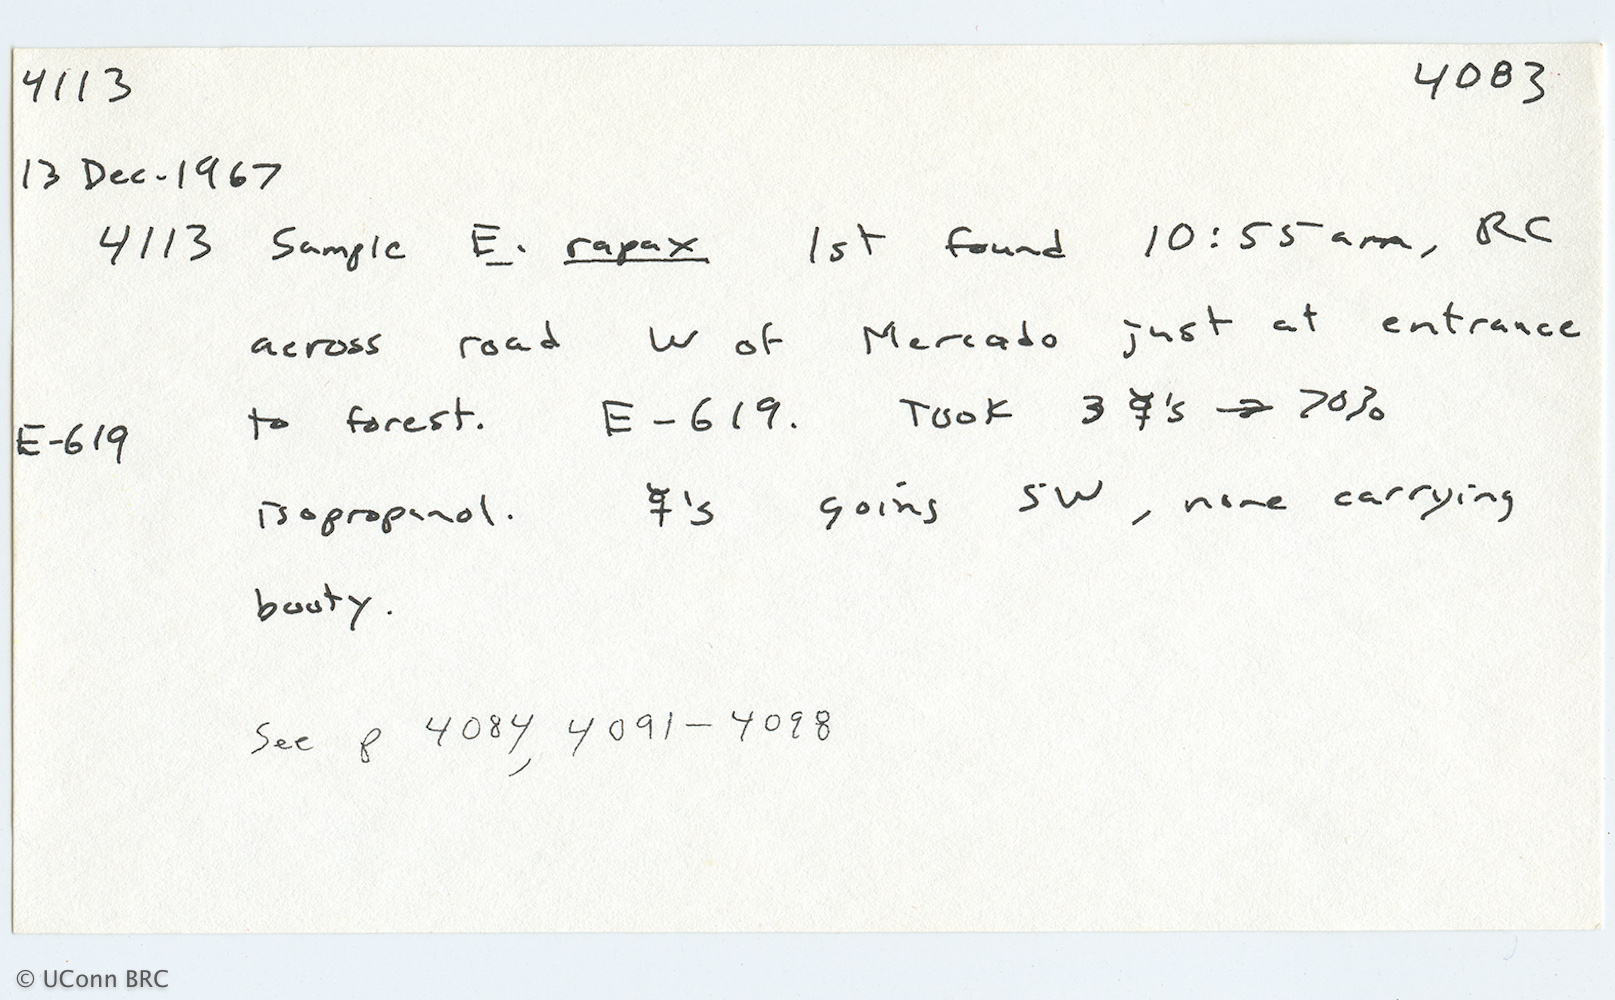 4113 4083
13 Dec. 1967
4113 Sample E. rapax 1st found 10:55 am, RC
across road W of Mercado just at entrance
E-619 to forest. E-619. Took 3 ☿'s → 70%
isopropanol. ☿'s going SW, none carrying
booty.
See p 4084, 4091-4098
© UConn BRC